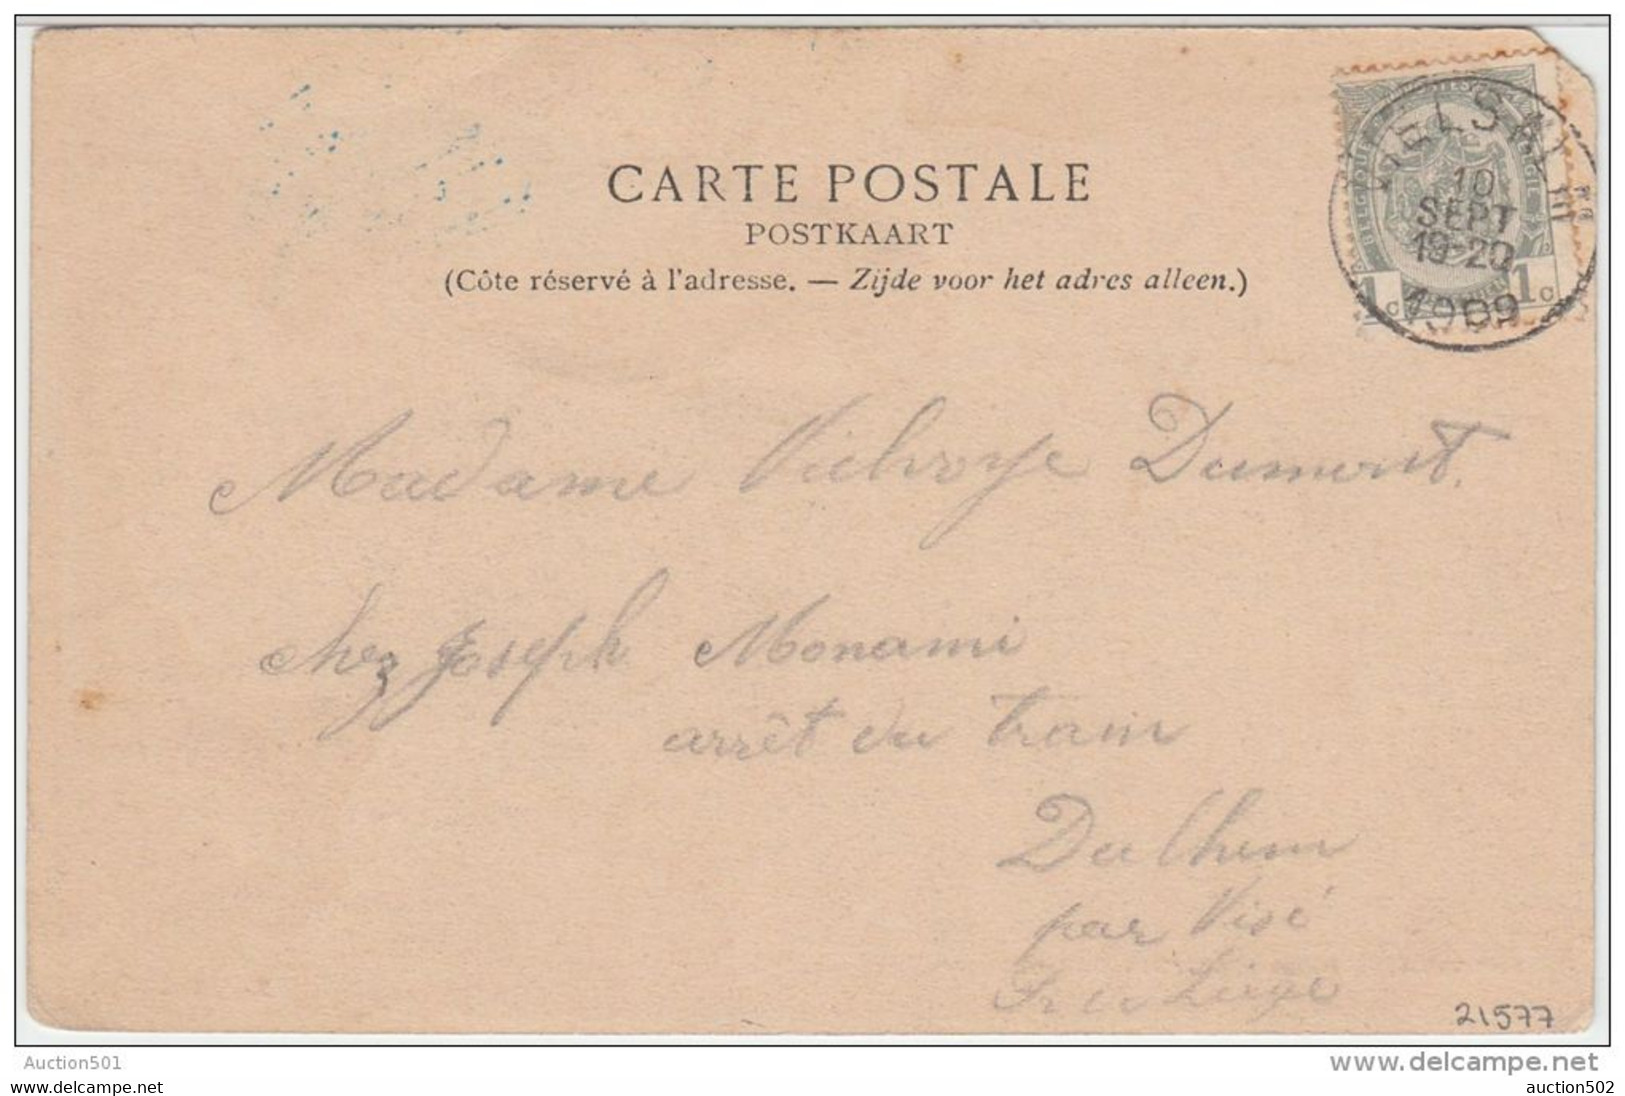 CARTE POSTALE
POSTKAART
(Côte réservé à l'adresse. — Zijde voor het adres alleen.)
10
SEPT
19-20
1909
1c 1c
Madame Dumont.
chez Joseph Monami
arrêt du tram
Dalhem
par Visé
Liège
21577
Auction501
www.delcampe.net
www.delcampe.net
auction502